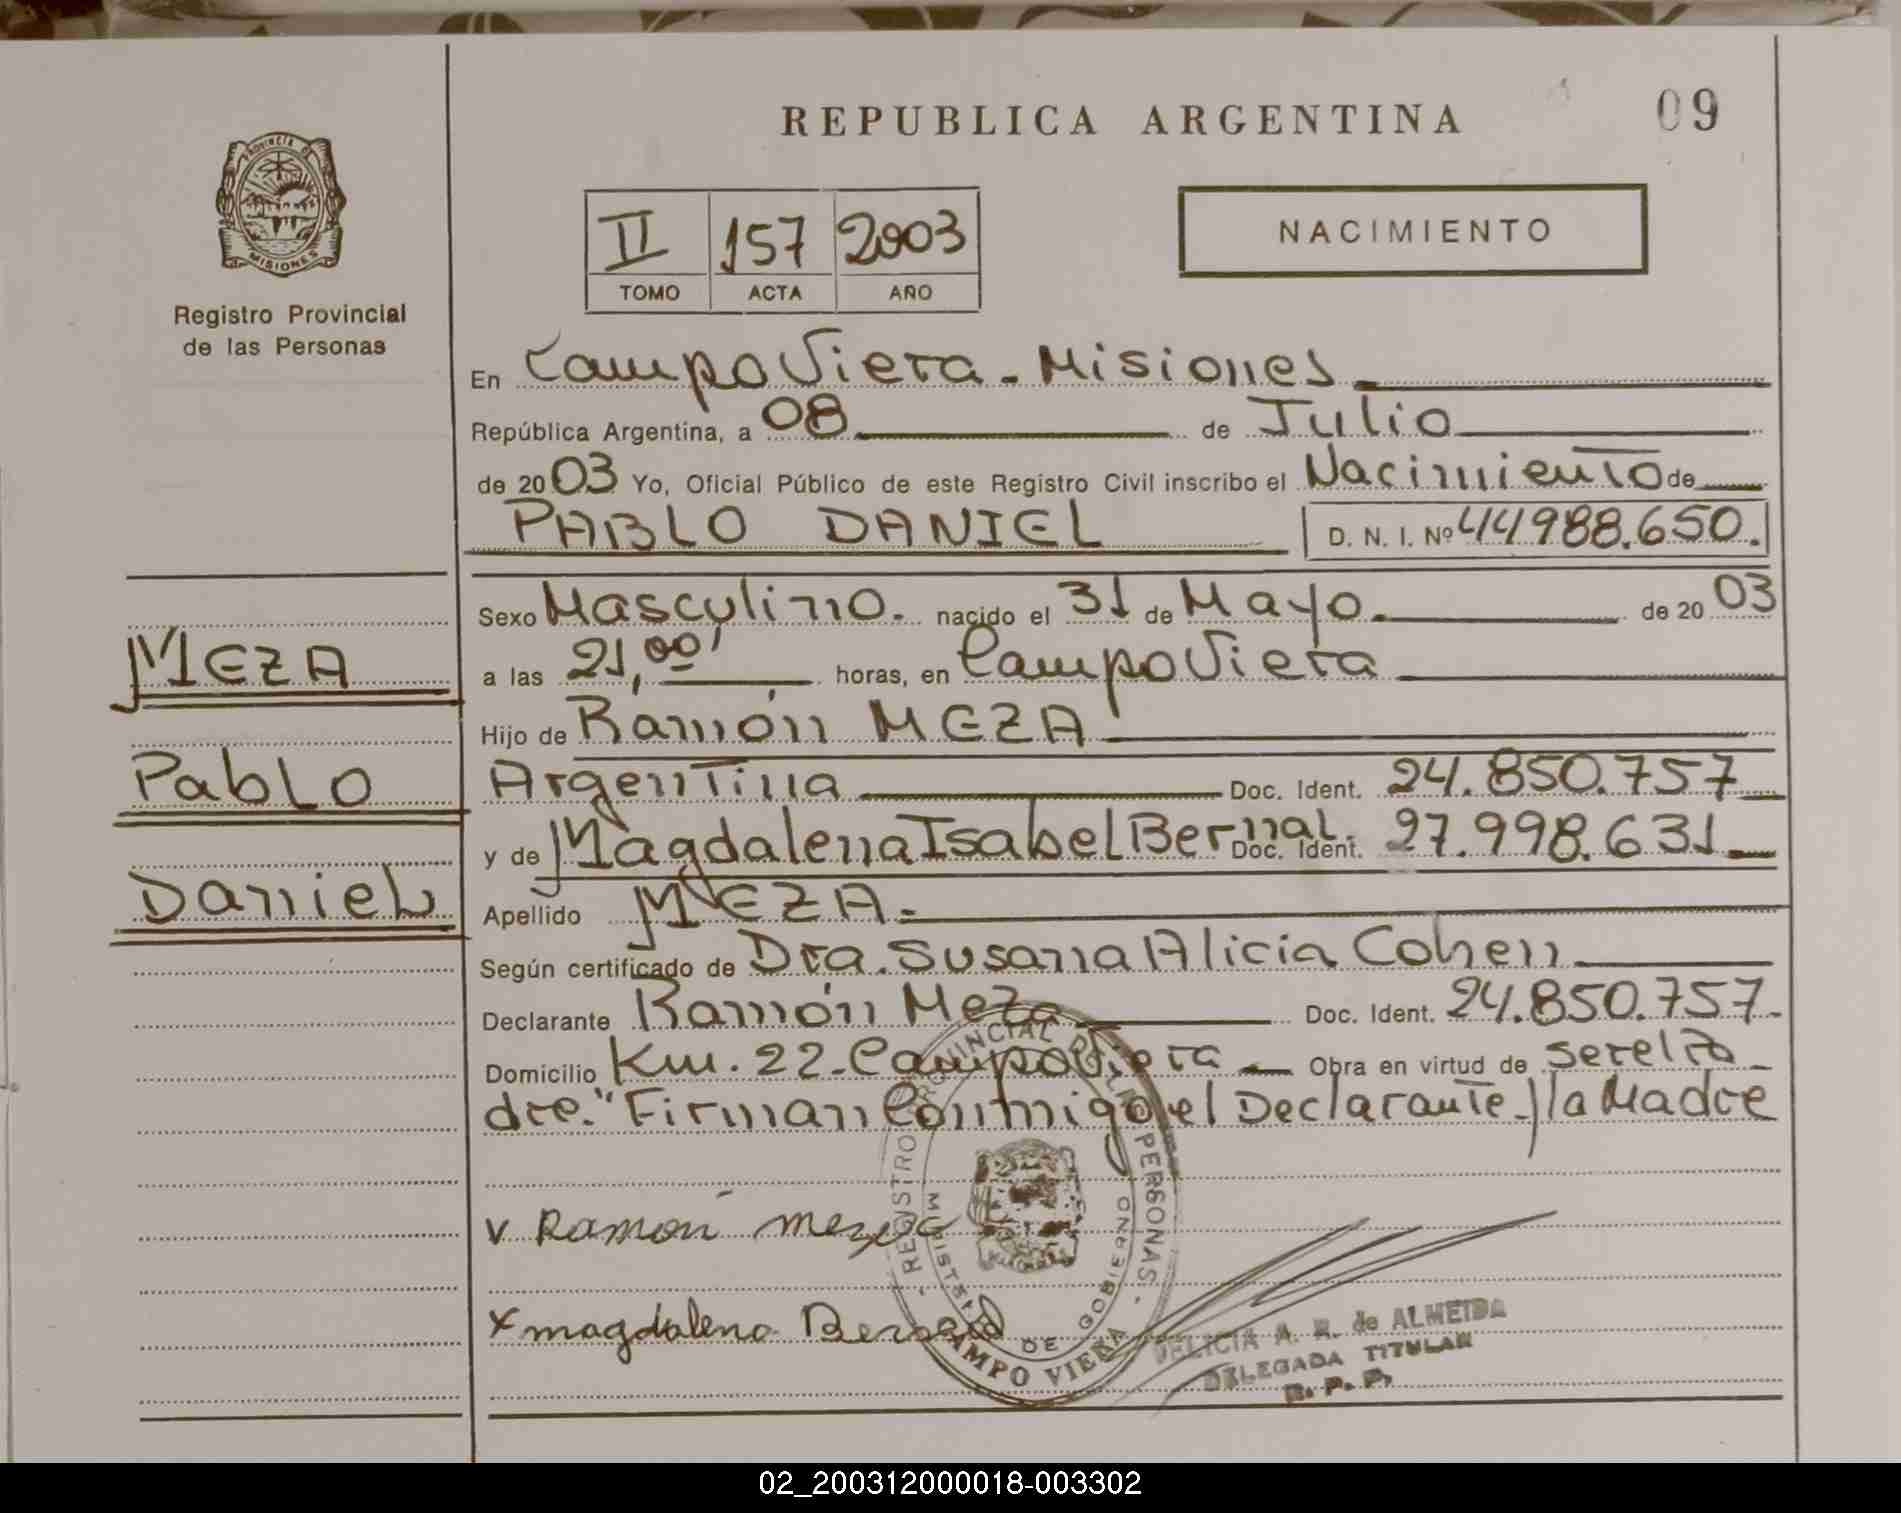 REPUBLICA ARGENTINA
09
PROVINCIA DE
MISIONES
Registro Provincial
de las Personas
II 157 2003
TOMO ACTA AÑO
NACIMIENTO
En Campo Viera - Misiones
República Argentina, a 08 de Julio
de 2003 Yo, Oficial Público de este Registro Civil inscribo el Nacimiento de
PABLO DANIEL D. N. I. Nº 44988.650.
Sexo Masculino. nacido el 31 de Mayo. de 20 03
a las 21,00' horas, en Campo Viera
Hijo de Ramón MEZA
Argentina Doc. Ident. 24.850.757
y de Magdalena Isabel Bernal. Doc. Ident. 27.998.631
Apellido MEZA.-
Según certificado de Dra. Susana Alicia Cohen
Declarante Ramón Meza Doc. Ident. 24.850.757.
Domicilio Km. 22-Campo Viera Obra en virtud de ser el Pa
dre." Firman Conmigo el Declarante y la Madre
MEZA
Pablo
Daniel
v Ramón meza
x magdalena Bernal
REGISTRO PROVINCIAL DE LAS PERSONAS
MINISTERIO DE GOBIERNO
CAMPO VIERA
DELICIA A. R. de ALMEIDA
DELEGADA TITULAR
R. P. P.
02_200312000018-003302